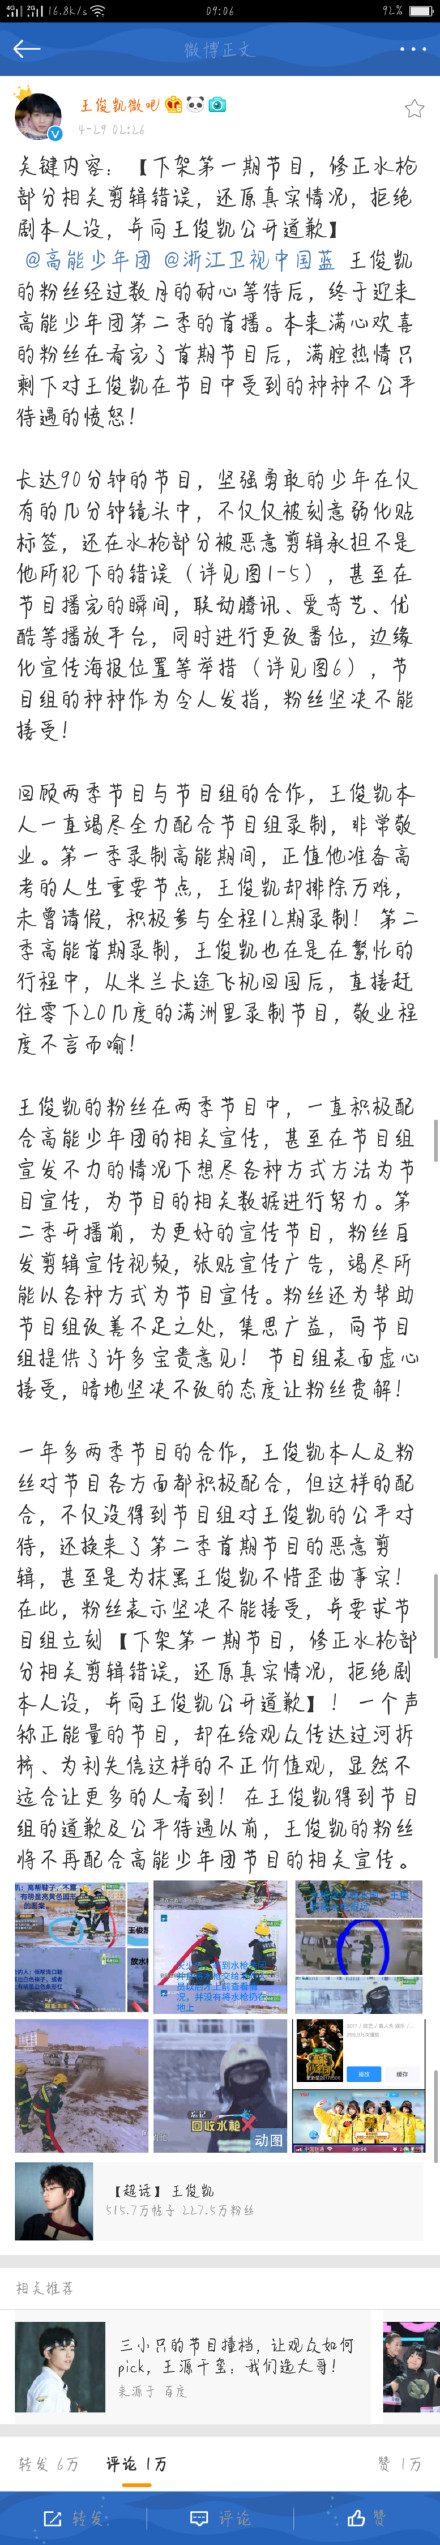 4G 2G 16.8K/s 09:06 92%
微博正文
王俊凯微吧
4-29 02:26
关键内容：【下架第一期节目，修正水枪
部分相关剪辑错误，还原真实情况，拒绝
剧本人设，并向王俊凯公开道歉】
@高能少年团 @浙江卫视中国蓝 王俊凯
的粉丝经过数月的耐心等待后，终于迎来
高能少年团第二季的首播。本来满心欢喜
的粉丝在看完了首期节目后，满腔热情只
剩下对王俊凯在节目中受到的种种不公平
待遇的愤怒！
长达90分钟的节目，坚强勇敢的少年在仅
有的几分钟镜头中，不仅仅被刻意弱化贴
标签，还在水枪部分被恶意剪辑承担不是
他所犯下的错误（详见图1-5），甚至在
节目播完的瞬间，联动腾讯、爱奇艺、优
酷等播放平台，同时进行更改番位，边缘
化宣传海报位置等举措（详见图6），节
目组的种种作为令人发指，粉丝坚决不能
接受！
回顾两季节目与节目组的合作，王俊凯本
人一直竭尽全力配合节目组录制，非常敬
业。第一季录制高能期间，正值他准备高
考的人生重要节点，王俊凯却排除万难，
未曾请假，积极参与全程12期录制！第二
季高能首期录制，王俊凯也在是在繁忙的
行程中，从米兰长途飞机回国后，直接赶
往零下20几度的满洲里录制节目，敬业程
度不言而喻！
王俊凯的粉丝在两季节目中，一直积极配
合高能少年团的相关宣传，甚至在节目组
宣发不力的情况下想尽各种方式方法为节
目宣传，为节目的相关数据进行努力。第
二季开播前，为更好的宣传节目，粉丝自
发剪辑宣传视频，张贴宣传广告，竭尽所
能以各种方式为节目宣传。粉丝还为帮助
节目组改善不足之处，集思广益，向节目
组提供了许多宝贵意见！节目组表面虚心
接受，暗地坚决不改的态度让粉丝费解！
一年多两季节目的合作，王俊凯本人及粉
丝对节目各方面都积极配合，但这样的配
合，不仅没得到节目组对王俊凯的公平对
待，还换来了第二季首期节目的恶意剪
辑，甚至是为抹黑王俊凯不惜歪曲事实！
在此，粉丝表示坚决不能接受，并要求节
目组立刻【下架第一期节目，修正水枪部
分相关剪辑错误，还原真实情况，拒绝剧
本人设，并向王俊凯公开道歉】！一个声
称正能量的节目，却在给观众传达过河拆
桥、为利失信这样的不正价值观，显然不
适合让更多的人看到！在王俊凯得到节目
组的道歉及公平待遇以前，王俊凯的粉丝
将不再配合高能少年团节目的相关宣传。
忘记
回收水枪
动图
缓存
【超话】王俊凯
515.7万帖子 227.5万粉丝
相关推荐
三小只的节目撞档，让观众如何
pick，王源千玺：我们选大哥！
来源于 百度
转发 6万 评论 1万 赞 1万
转发 评论 赞